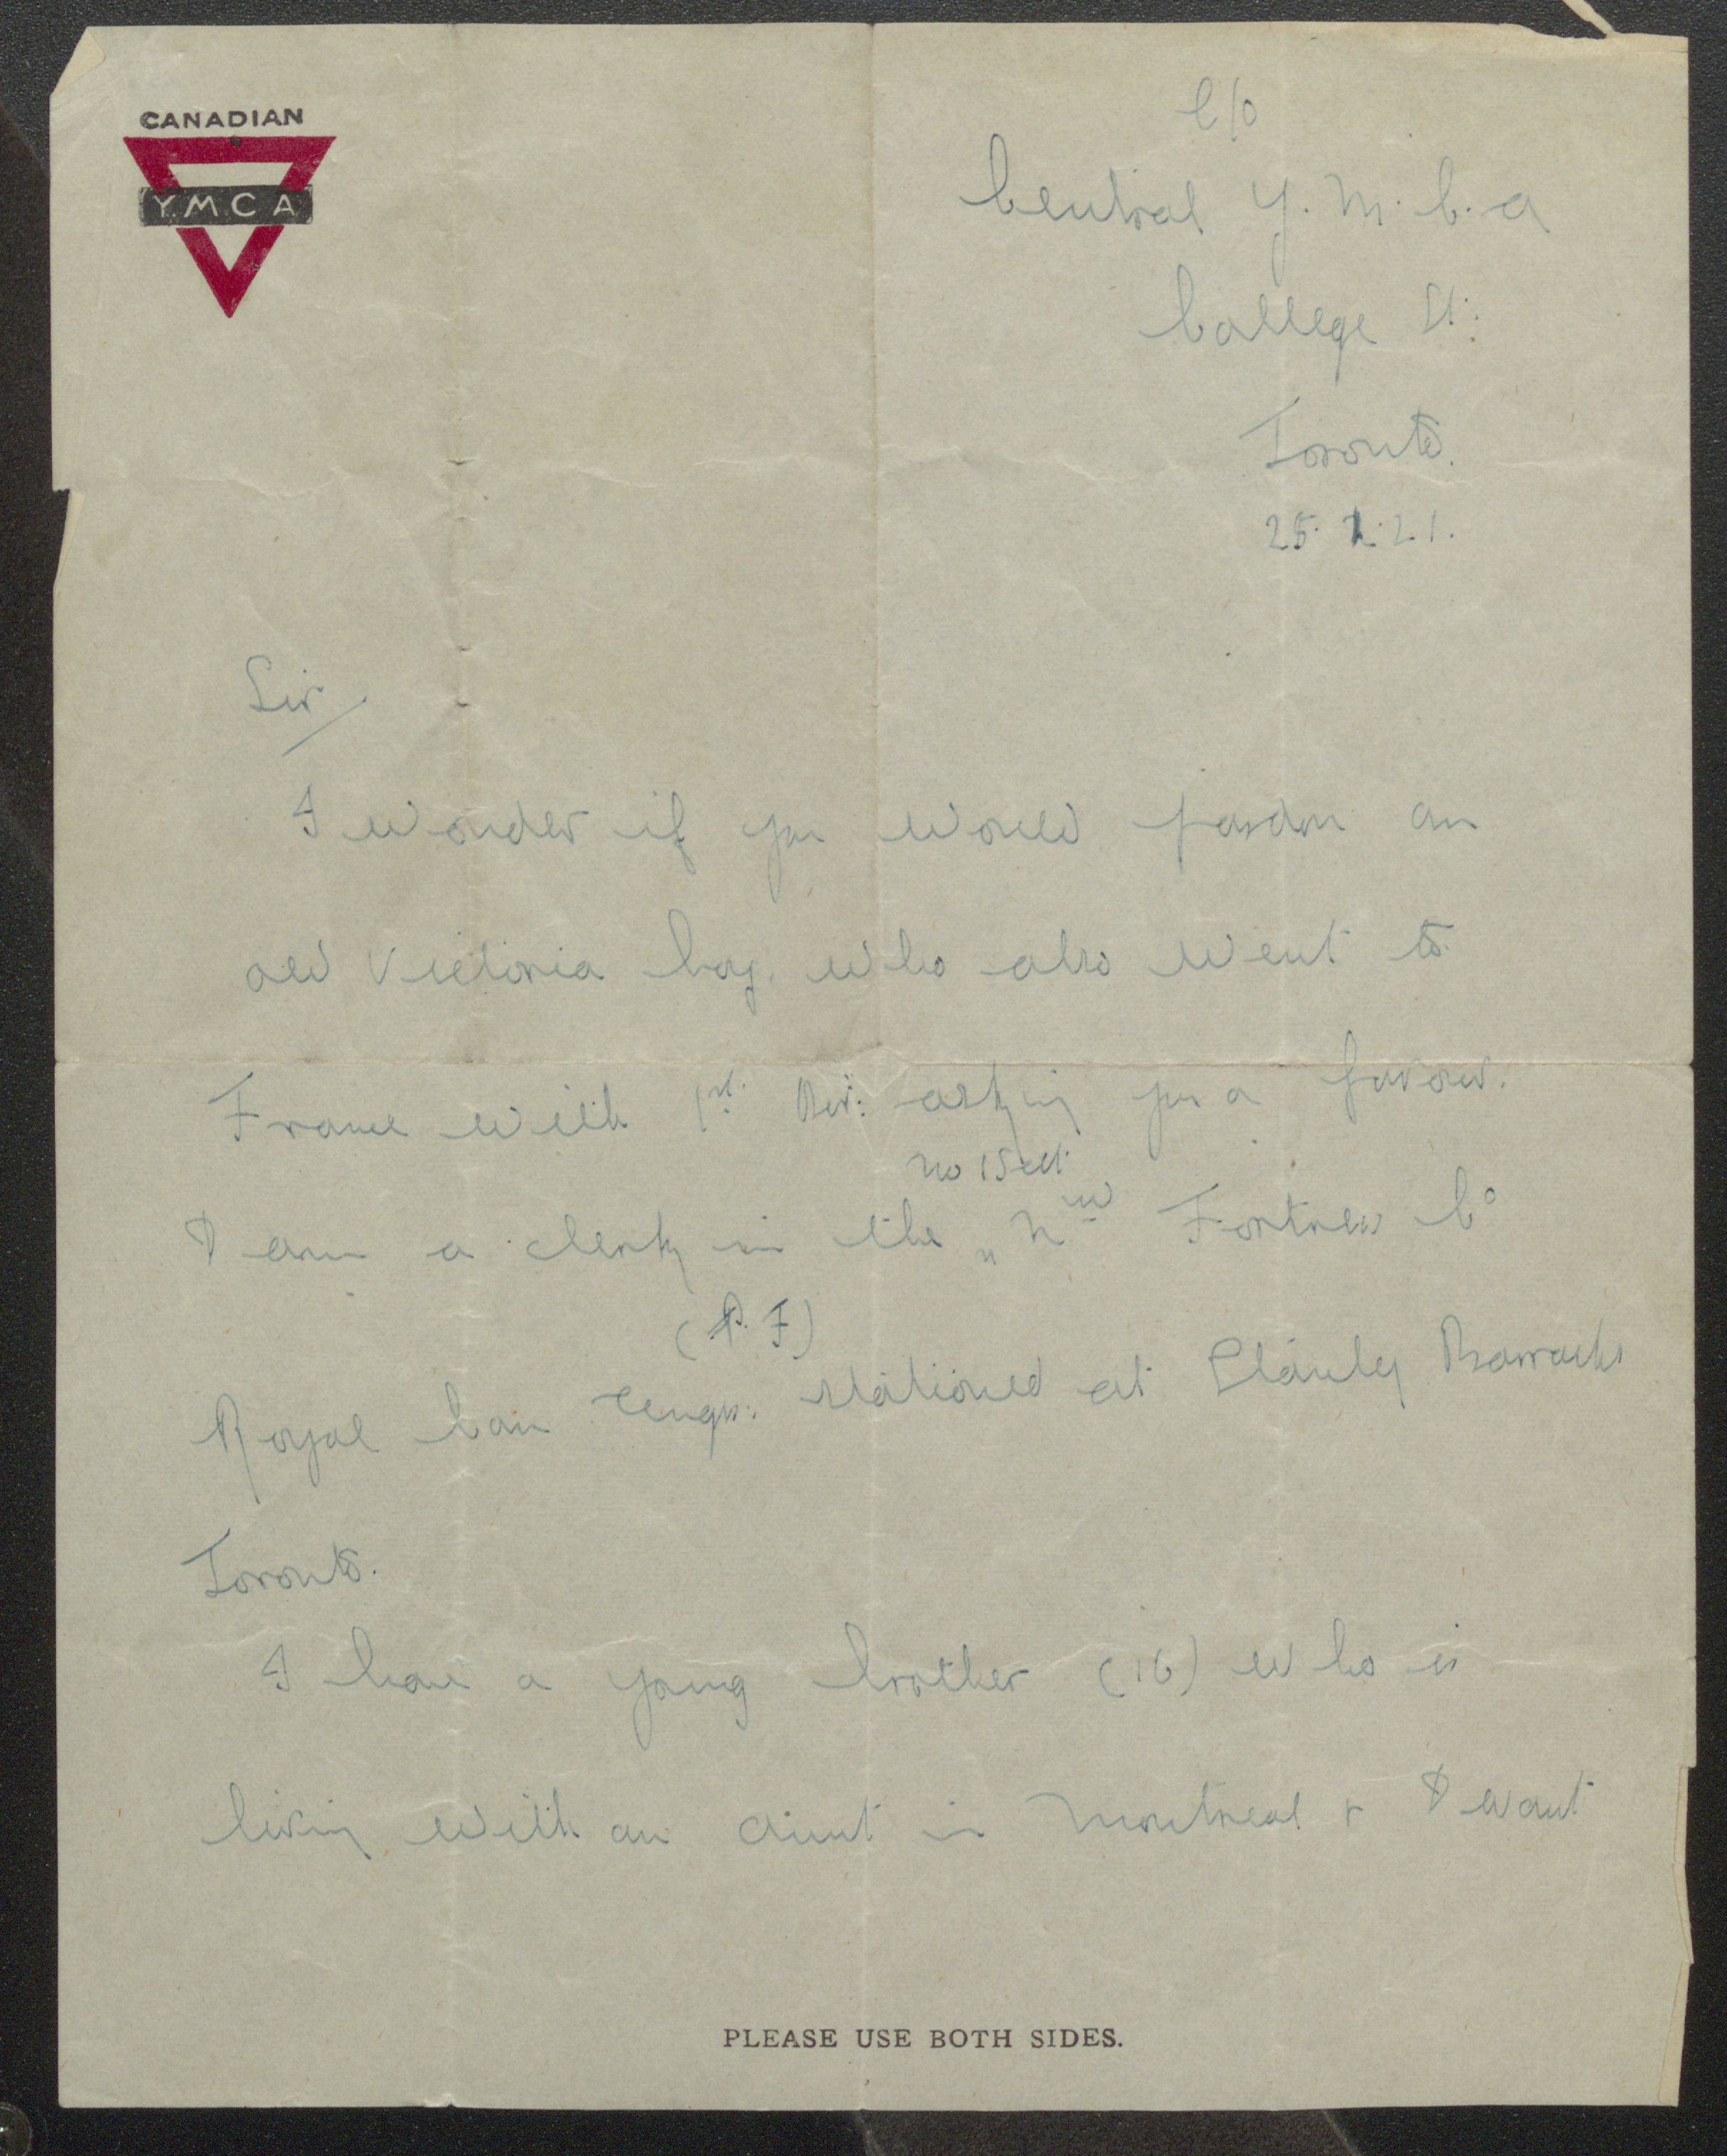 CANADIAN
Y.M.C.A
C/o
Central Y.M.C.A
College St.
Toronto.
Sir/
I wonder if you would pardon an
old Victoria boy. who also went to
France with 1st Div: asking you a favour.
no 1 Sect.
I am a clerk in the Fortress Co
(P.F)
Royal Can Engrs. stationed at Stanley Barracks
Toronto.
I have a young brother (16) who is
living with an aunt in Montreal & I want
PLEASE USE BOTH SIDES.